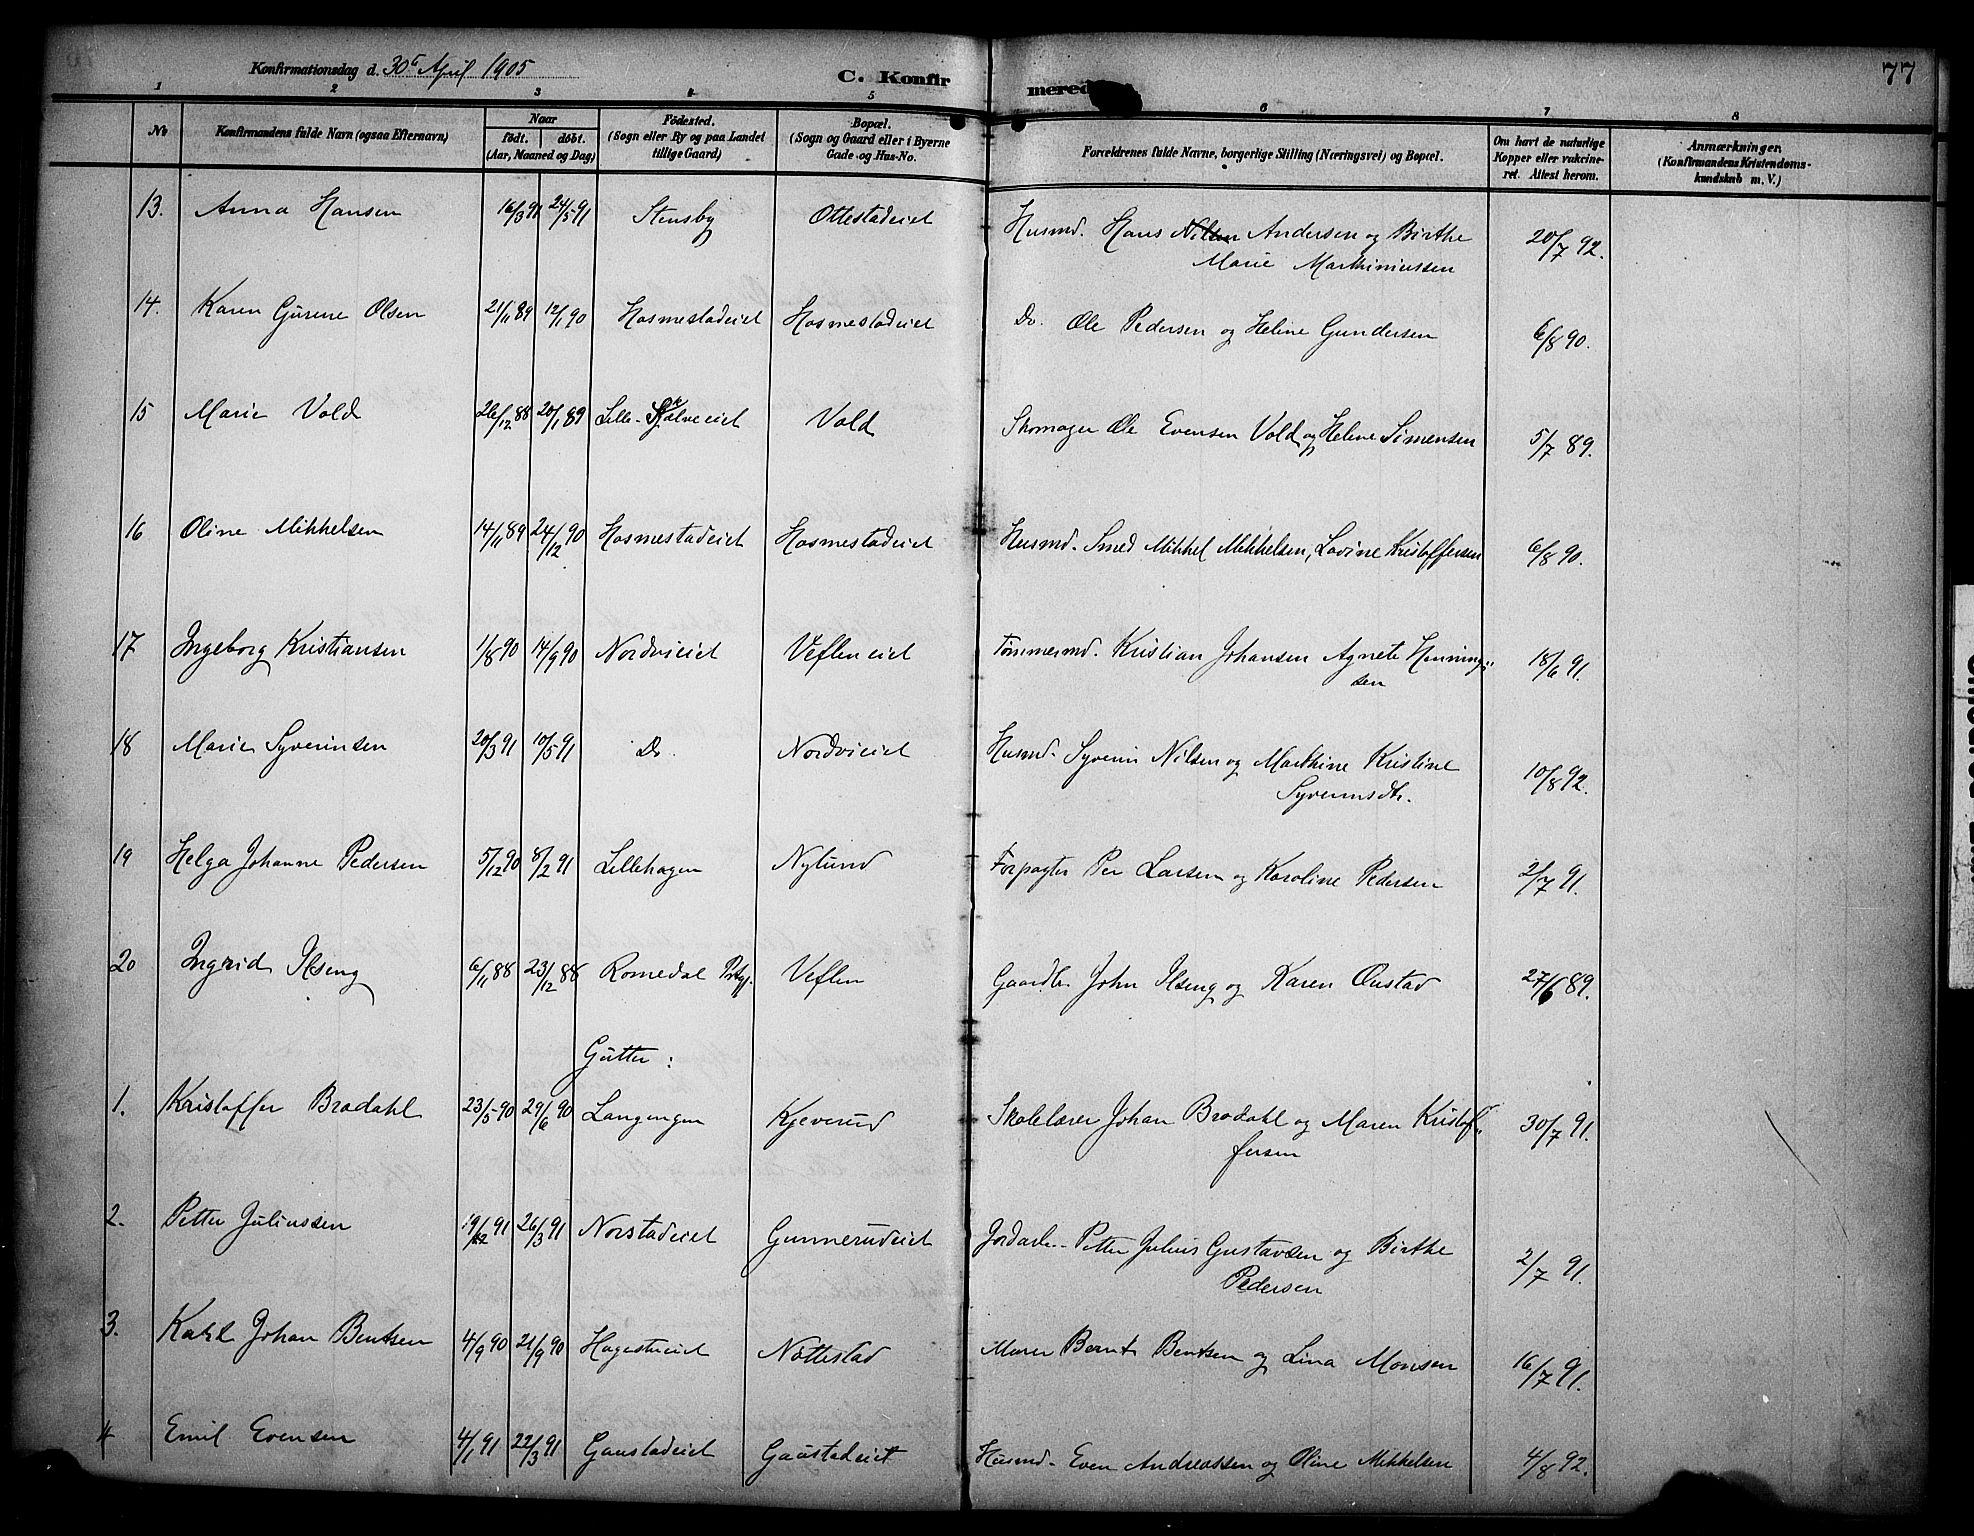 Konfirmationsdag d. 30te April 1905
C. Konfirmerede
77
1 2 3 4 5 6 7 8
No Konfirmandens fulde Navn (ogsaa Efternavn) Naar født. døbt. (Aar, Maaned og Dag) Födested. (Sogn eller By og paa Landet tillige Gaard) Bopæl. (Sogn og Gaard eller i Byerne Gade og Hus-No. Forældrenes fulde Navne, borgerlige Stilling (Næringsvei) og Bopæl. Om havt de naturlige Kopper eller vakcineret. Attest herom. Anmærkninger. (Konfirmandens Kristendomskundskab m. V.)
13. Anna Hansen 16/3 91 24/5 91 Stensby Ottestadeiet Husmd. Hans Nilsen Andersen og Birthe
Marie Marthiniussen 20/7 92.
14. Karen Gurene Olsen 21/11 89 12/1 90 Hosmestadeiet Hosmestadeiet Do. Ole Pedersen og Heline Gundersen 6/8 90.
15 Marie Vold 26/12 88 20/1 89 Lille-Skjølveeiet Vold Skomager Ole Evensen Vold og Helene Simensen 5/7 89.
16 Oline Mikkelsen 14/11 89 24/12 90 Hosmestadeiet Hosmestadeiet Husmd. Smed Mikkel Mikkelsen, Lovine Kristoffersen 6/8 90.
17 Ingeborg Kristiansen 1/8 90 14/9 90 Nordvieiet Vefleneiet Tømmermd. Kristian Johansen Agnete Henning-
sen 18/6 91.
18 Marie Syverinsen 20/3 91 10/5 91 Do Nordvieiet Husmd. Syverin Nilsen og Marthine Kristine
Syverinsdtr. 10/8 92.
19 Helga Johanne Pedersen 5/12 90 8/2 91 Lillehagen Nylund Forpagter Per Larsen og Karoline Pedersen 2/7 91.
20 Ingrid Ilseng 6/11 88 23/12 88 Romedal Prstgj. Veflen Gaardbr. John Ilseng og Karen Oustad 27/6 89.
Gutter:
1. Kristoffer Brodahl 23/5 90 29/6 90 Langengen Kjeverud Skolelærer Johan Brodahl og Maren Kristof-
fersen 30/7 91.
2. Petter Juliussen 19/12 91 26/3 91 Norstadeiet Gunnerudeiet Jordarb. Petter Julius Gustavsen og Birthe
Pedersen 2/7 91.
3. Karl Johan Bentsen 4/9 90 21/9 90 Hagestueiet Nøttestad Murer Bernt Bentsen og Lina Monsen 16/7 91.
4 Emil Evensen 4/1 91 22/3 91 Gaustadeiet Gaustadeiet Husmd. Even Andreassen og Oline Mikkelsen 4/8 92.